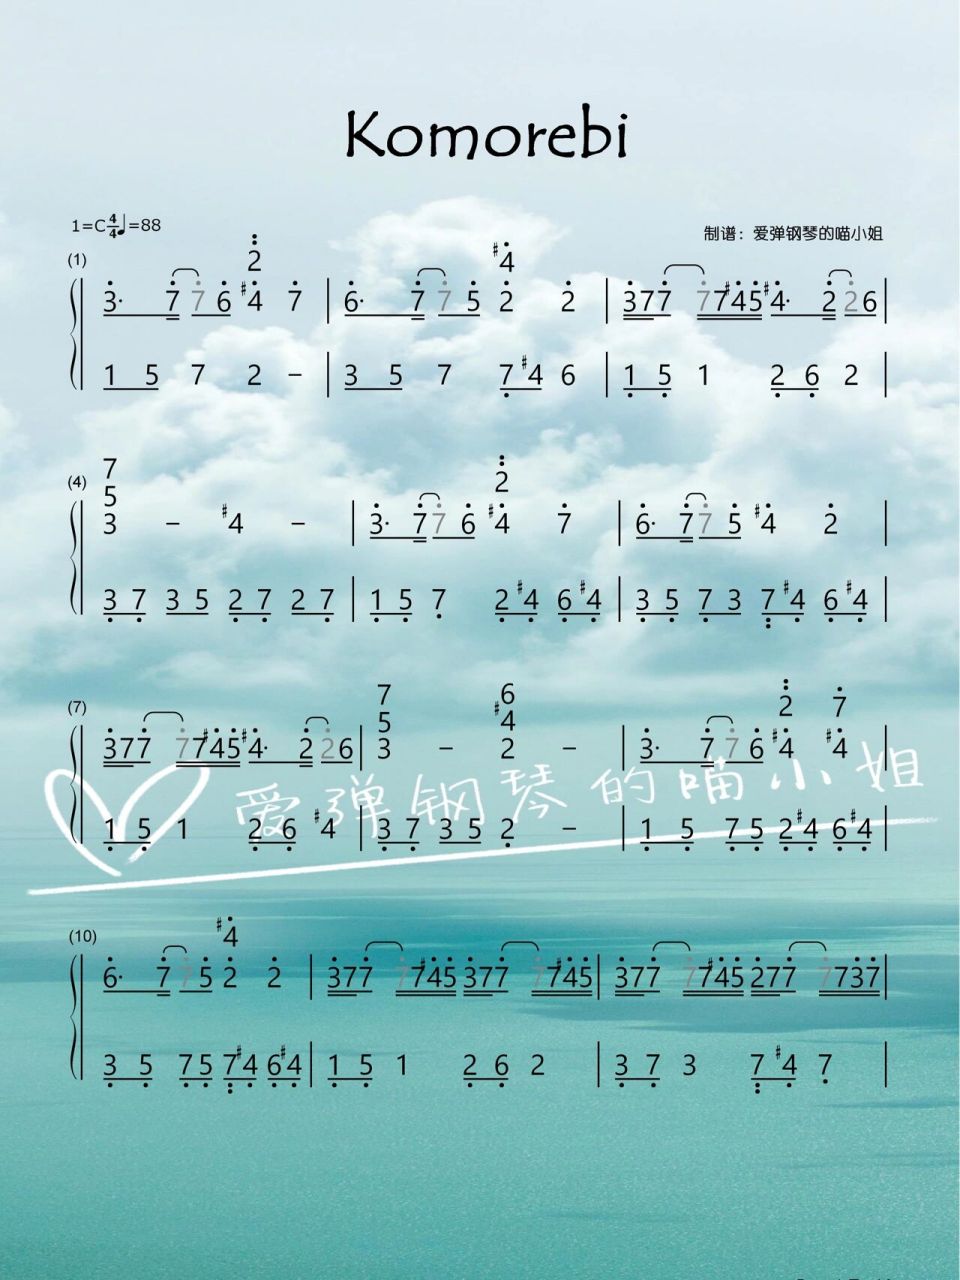 Komorebi
1=C 4/4 ♩=88
制谱：爱弹钢琴的喵小姐
(1)
2 #4
3· 7 7 6 #4 7 | 6· 7 7 5 2 2 | 3 7 7 7 7 #4 5 #4· 2 2 6 |
1 5 7 2 – | 3 5 7 7 #4 6 | 1 5 1 2 6 2 |
7
(4) 5 2
3 – #4 – | 3· 7 7 6 #4 7 | 6· 7 7 5 #4 2 |
3 7 3 5 2 7 2 7 | 1 5 7 2 #4 6 #4 | 3 5 7 3 7 #4 6 #4 |
7 6 2 7
(7) 5 #4
3 7 7 7 7 #4 5 #4· 2 2 6 | 3 – 2 – | 3· 7 7 6 #4 #4 |
爱弹钢琴的喵小姐
1 5 1 2 6 #4 | 3 7 3 5 2 – | 1 5 7 5 2 #4 6 #4 |
(10) #4
6· 7 7 5 2 2 | 3 7 7 7 7 #4 5 3 7 7 7 7 #4 5 | 3 7 7 7 7 #4 5 2 7 7 7 7 3 7 |
3 5 7 5 7 #4 6 #4 | 1 5 1 2 6 2 | 3 7 3 7 #4 7 |